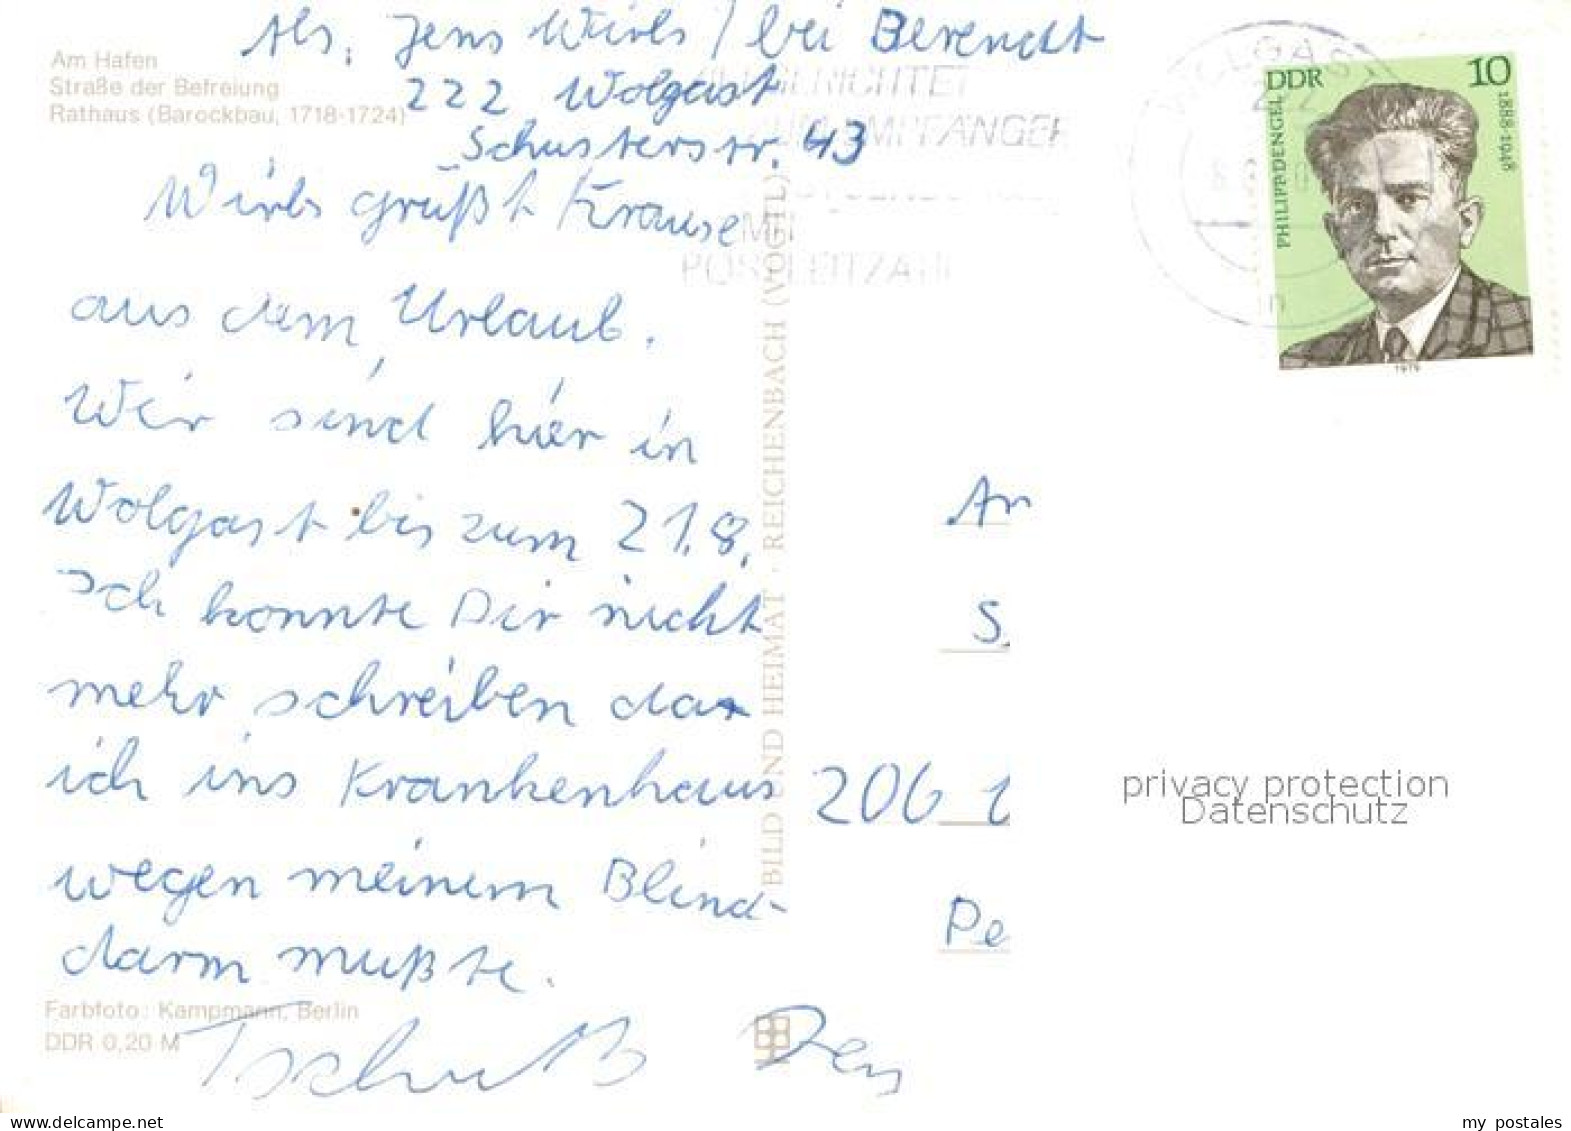 Abs. Jens Wirbs / bei Berendt
222 Wolgast
Schusterstr. 43
Am Hafen
Straße der Befreiung
Rathaus (Barockbau, 1718-1724)
Wirbs grüßt Krause
aus dem Urlaub.
Wir sind hier in
Wolgast bis zum 21.8.
Ich konnte Dir nicht
mehr schreiben da
ich ins Krankenhaus
wegen meinem Blind-
darm mußte.
Tschuß Jens
Farbfoto: Kampmann, Berlin
DDR 0,20 M
BILD UND HEIMAT · REICHENBACH (VOGTL)
EMPFÄNGER
MIT
POSTLEITZAHL
WOLGAST
DDR 10
PHILIPP DENGEL
1888-1948
1979
An
S
206
Pe
privacy protection
Datenschutz
www.delcampe.net
my_postales